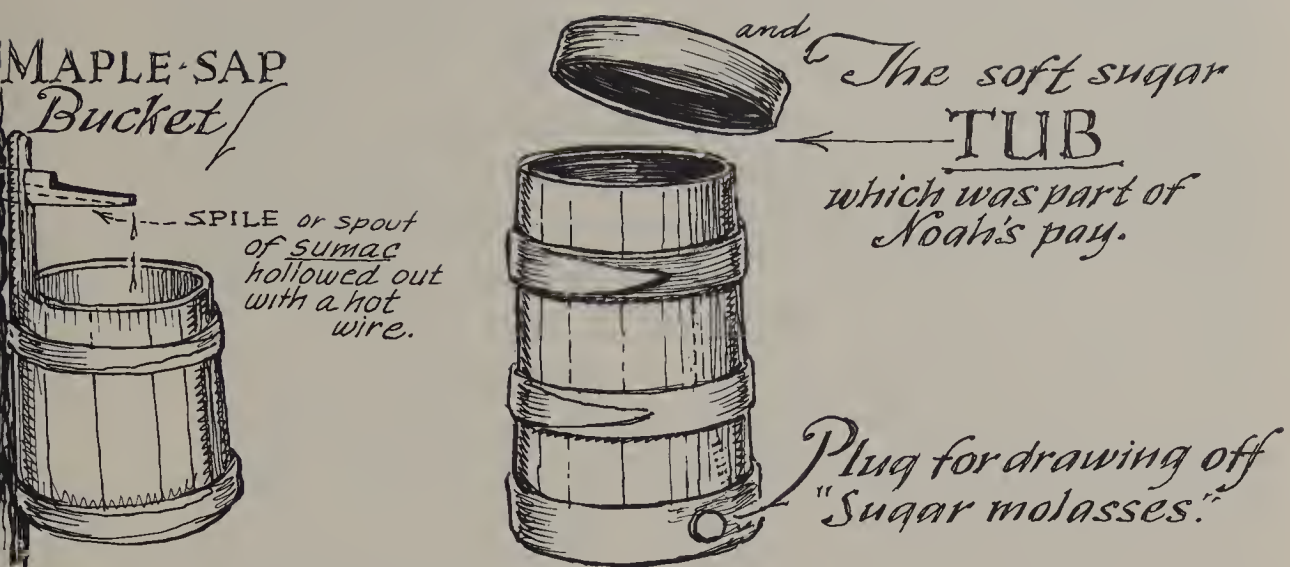 MAPLE-SAP
Bucket
SPILE or spout
of sumac
hollowed out
with a hot
wire.
and
The soft sugar
TUB
which was part of
Noah's pay.
Plug for drawing off
"Sugar molasses."